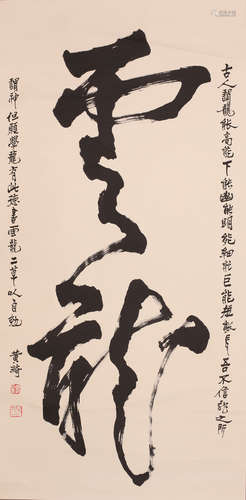 古人謂龍能高能下能幽能明能細能巨能短能長吾不信龍之所
雲龍
謂神但願學龍有此德書雲龍二草以自勉
黄綺